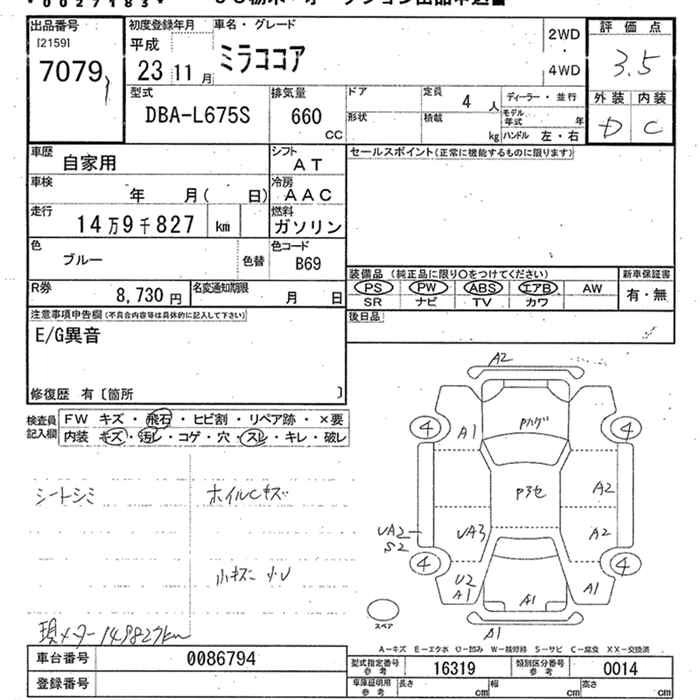 *0027183*
出品番号 [2159] 7079
初度登録年月 平成 23 11月
車名・グレード ミラココア
2WD ・ 4WD
評価点 3.5
外装 内装 D C
型式 DBA-L675S
排気量 660 CC
ドア 定員 4人
形状 積載 kg
ディーラー・並行
モデル年式 年
ハンドル 左・右
車歴 自家用
シフト AT
セールスポイント(正常に機能するものに限ります)
車検 年 月( 日)
冷房 AAC
走行 14万9千827 km
燃料 ガソリン
色 ブルー 色替
色コード B69
装備品 (純正品に限り○をつけてください)
新車保証書
PS PW ABS エアB AW
有・無
SR ナビ TV カワ
R券 8,730円
名変通知期限 月 日
後日品
注意事項申告欄(不具合内容等は具体的に記入して下さい)
E/G異音
修復歴 有〔箇所 〕
検査員記入欄
FW キズ・飛石・ヒビ割・リペア跡・×要
内装 キズ・汚レ・コゲ・穴・スレ・キレ・破レ
シートシミ
ホイルキズ
小キズ 小U
現メーター149827km
A2
4 A1 4
A2
UA2 S2
UA3
A2
4 U2 A1 A1 A1 4
スペア
A1
A-キズ E-エクボ U-凹み W-補修跡 S-サビ C-腐食 XX-交換済
車台番号 0086794
型式指定番号 参考 16319
類別区分番号 参考 0014
登録番号
車庫証明用 参考 長さ cm 幅 cm 高さ cm